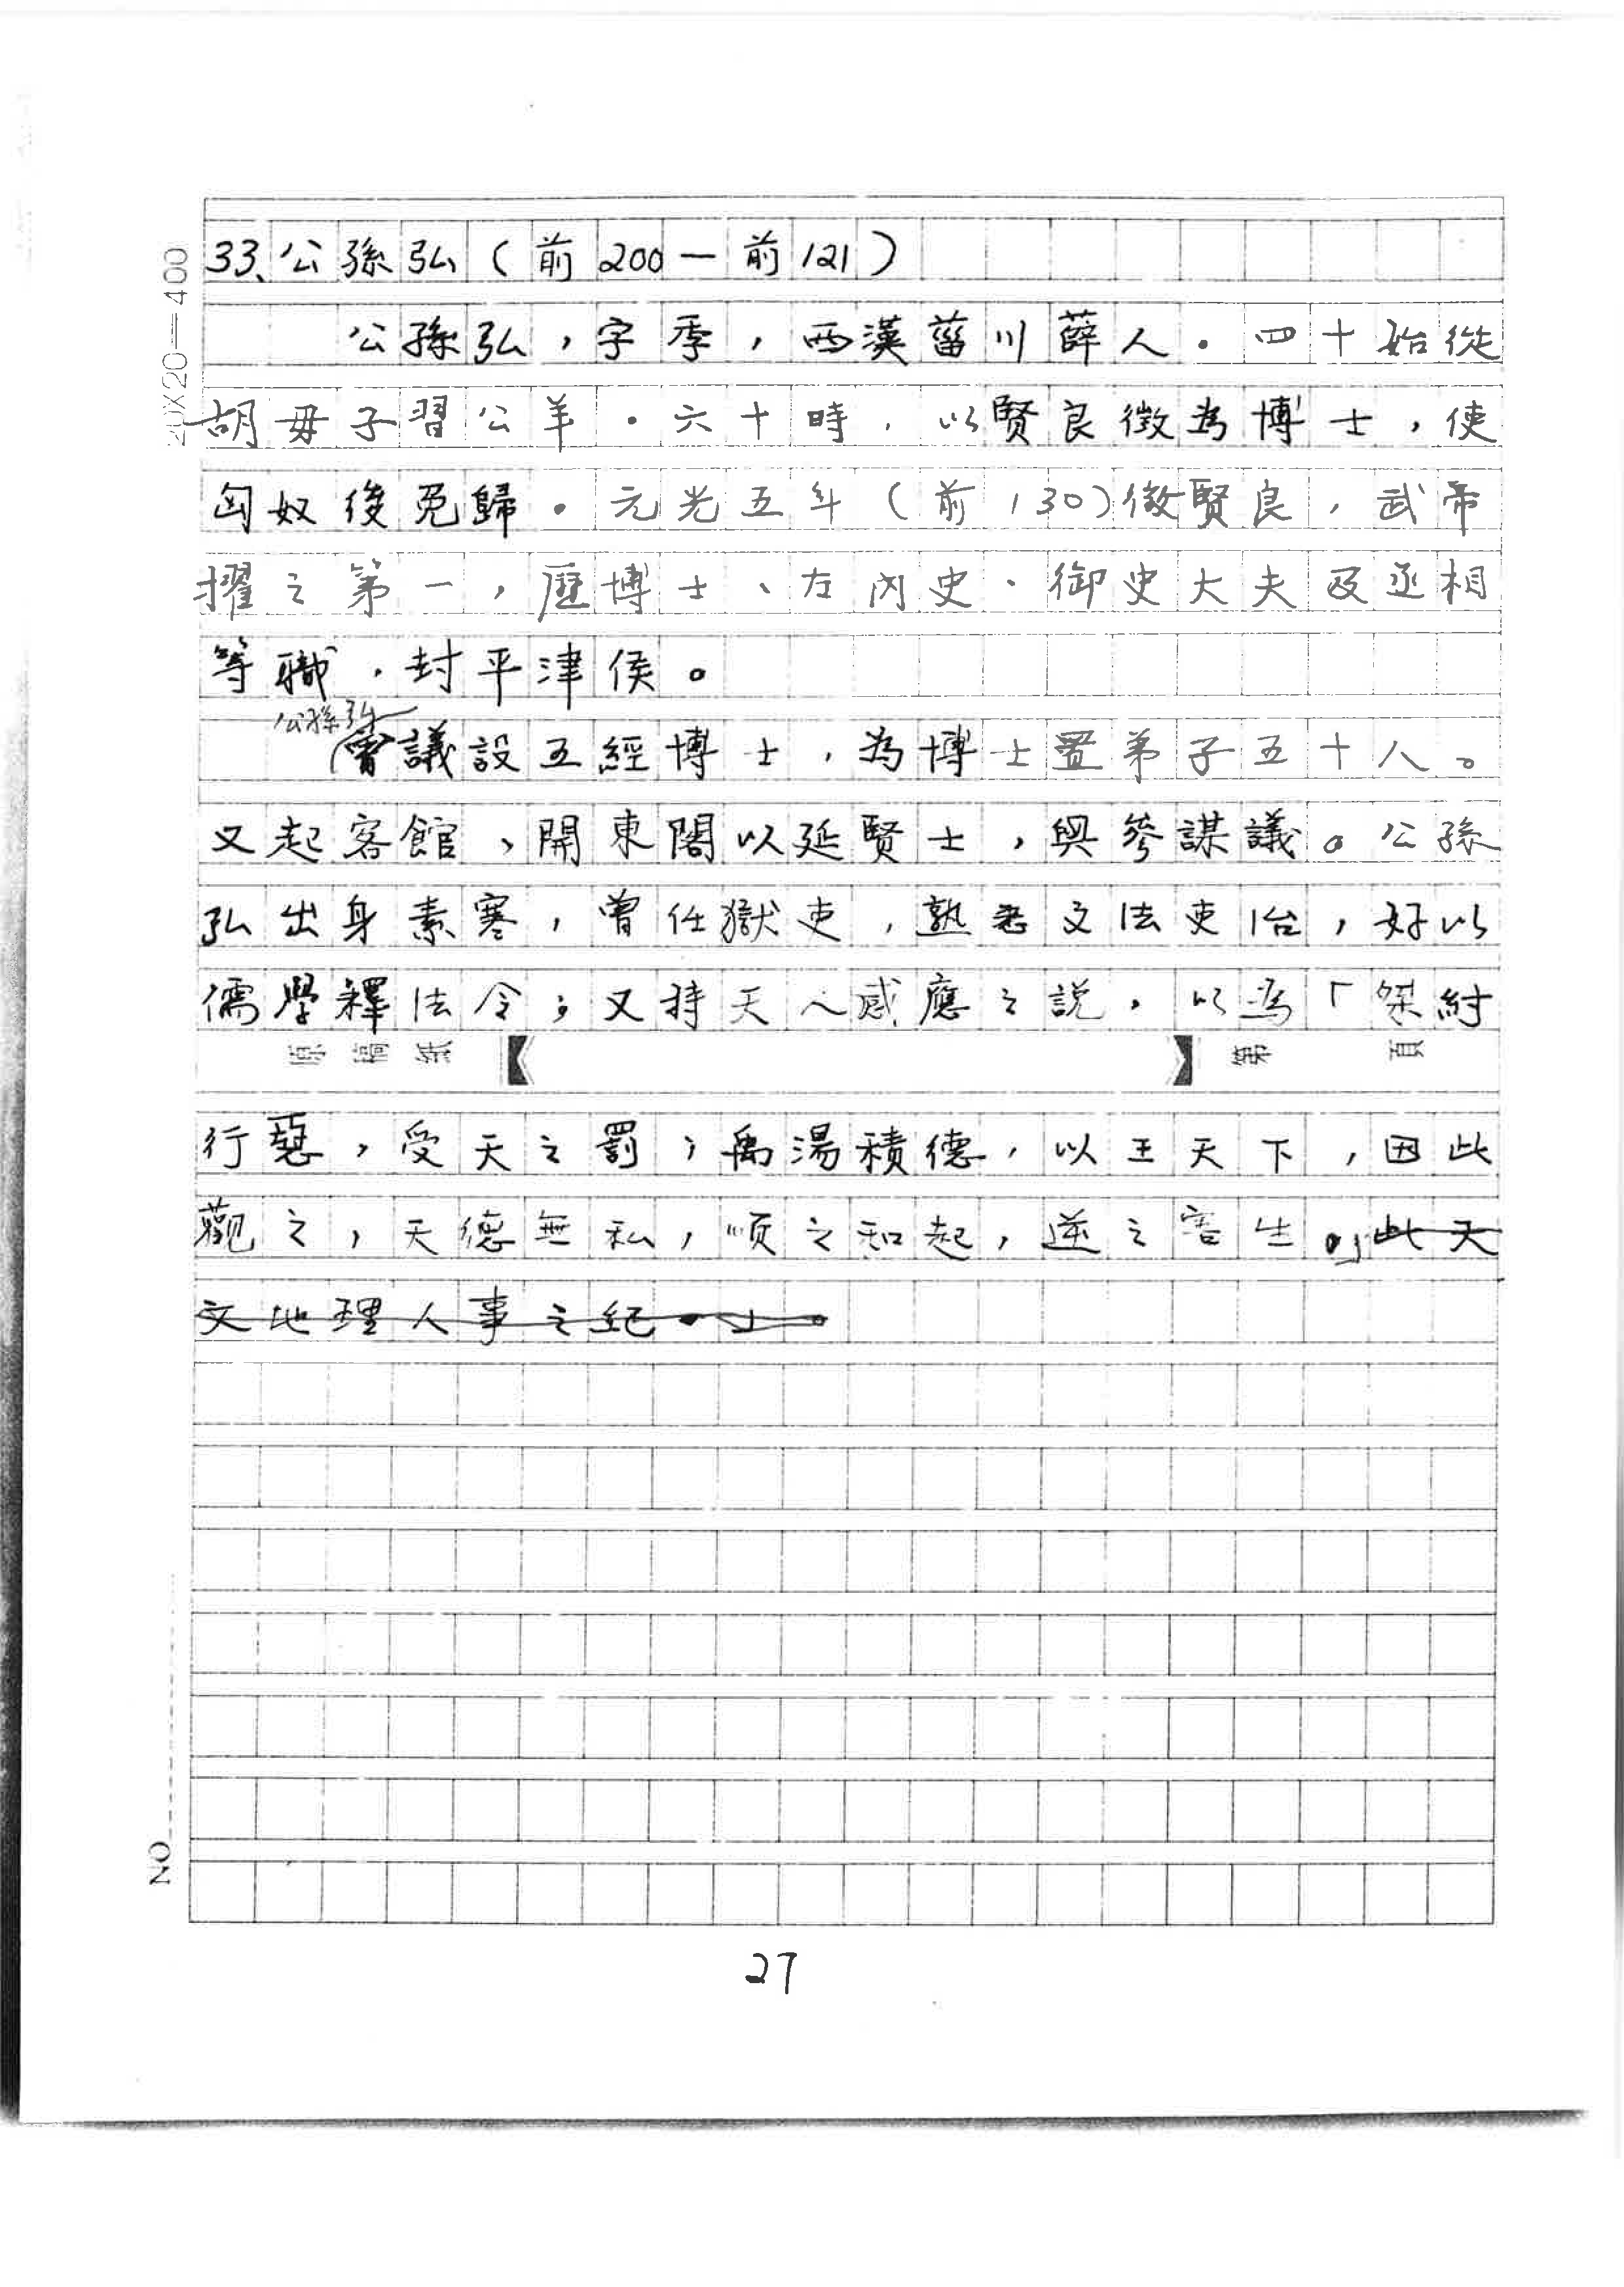 20X20=400
33、公孫弘(前200—前121)
公孫弘,字季,西漢菑川薛人。四十始從
胡毋子習公羊。六十時,以賢良徵為博士,使
匈奴後免歸。元光五年(前130)徵賢良,武帝
擢之第一,歷博士、左內史、御史大夫及丞相
等職,封平津侯。
公孫弘
曾議設五經博士,為博士置弟子五十人。
又起客館,開東閣以延賢士,與參謀議。公孫
弘出身素寒,曾任獄吏,熟悉文法吏治,好以
儒學釋法令;又持天人感應之說,以為「桀紂
原稿紙 第 頁
行惡,受天之罰;禹湯積德,以王天下,因此
觀之,天德無私,順之和起,逆之害生。」此天
文地理人事之紀。」
NO
27